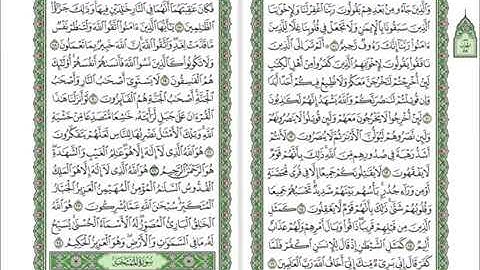 وَٱلَّذِينَ جَآءُو مِنۢ بَعْدِهِمْ يَقُولُونَ رَبَّنَا ٱغْفِرْ لَنَا وَلِإِخْوَٰنِنَا
ٱلَّذِينَ سَبَقُونَا بِٱلْإِيمَٰنِ وَلَا تَجْعَلْ فِى قُلُوبِنَا غِلًّا لِّلَّذِينَ
ءَامَنُوا۟ رَبَّنَآ إِنَّكَ رَءُوفٌ رَّحِيمٌ ١٠ أَلَمْ تَرَ إِلَى ٱلَّذِينَ نَافَقُوا۟
يَقُولُونَ لِإِخْوَٰنِهِمُ ٱلَّذِينَ كَفَرُوا۟ مِنْ أَهْلِ ٱلْكِتَٰبِ
لَئِنْ أُخْرِجْتُمْ لَنَخْرُجَنَّ مَعَكُمْ وَلَا نُطِيعُ فِيكُمْ أَحَدًا أَبَدًا
وَإِن قُوتِلْتُمْ لَنَنصُرَنَّكُمْ وَٱللَّهُ يَشْهَدُ إِنَّهُمْ لَكَٰذِبُونَ ١١
لَئِنْ أُخْرِجُوا۟ لَا يَخْرُجُونَ مَعَهُمْ وَلَئِن قُوتِلُوا۟ لَا يَنصُرُونَهُمْ
وَلَئِن نَّصَرُوهُمْ لَيُوَلُّنَّ ٱلْأَدْبَٰرَ ثُمَّ لَا يُنصَرُونَ ١٢ لَأَنتُمْ
أَشَدُّ رَهْبَةً فِى صُدُورِهِم مِّنَ ٱللَّهِ ذَٰلِكَ بِأَنَّهُمْ قَوْمٌ
لَّا يَفْقَهُونَ ١٣ لَا يُقَٰتِلُونَكُمْ جَمِيعًا إِلَّا فِى قُرًى مُّحَصَّنَةٍ
أَوْ مِن وَرَآءِ جُدُرٍۭ بَأْسُهُم بَيْنَهُمْ شَدِيدٌ تَحْسَبُهُمْ جَمِيعًا
وَقُلُوبُهُمْ شَتَّىٰ ذَٰلِكَ بِأَنَّهُمْ قَوْمٌ لَّا يَعْقِلُونَ ١٤ كَمَثَلِ
ٱلَّذِينَ مِن قَبْلِهِمْ قَرِيبًا ذَاقُوا۟ وَبَالَ أَمْرِهِمْ وَلَهُمْ عَذَابٌ
أَلِيمٌ ١٥ كَمَثَلِ ٱلشَّيْطَٰنِ إِذْ قَالَ لِلْإِنسَٰنِ ٱكْفُرْ فَلَمَّا كَفَرَ
قَالَ إِنِّى بَرِىٓءٌ مِّنكَ إِنِّىٓ أَخَافُ ٱللَّهَ رَبَّ ٱلْعَٰلَمِينَ ١٦
فَكَانَ عَٰقِبَتَهُمَآ أَنَّهُمَا فِى ٱلنَّارِ خَٰلِدَيْنِ فِيهَا وَذَٰلِكَ جَزَٰٓؤُا۟
ٱلظَّٰلِمِينَ ١٧ يَٰٓأَيُّهَا ٱلَّذِينَ ءَامَنُوا۟ ٱتَّقُوا۟ ٱللَّهَ وَلْتَنظُرْ نَفْسٌ
مَّا قَدَّمَتْ لِغَدٍ وَٱتَّقُوا۟ ٱللَّهَ إِنَّ ٱللَّهَ خَبِيرٌۢ بِمَا تَعْمَلُونَ ١٨
وَلَا تَكُونُوا۟ كَٱلَّذِينَ نَسُوا۟ ٱللَّهَ فَأَنسَىٰهُمْ أَنفُسَهُمْ أُو۟لَٰٓئِكَ
هُمُ ٱلْفَٰسِقُونَ ١٩ لَا يَسْتَوِىٓ أَصْحَٰبُ ٱلنَّارِ وَأَصْحَٰبُ
ٱلْجَنَّةِ أَصْحَٰبُ ٱلْجَنَّةِ هُمُ ٱلْفَآئِزُونَ ٢٠ لَوْ أَنزَلْنَا هَٰذَا
ٱلْقُرْءَانَ عَلَىٰ جَبَلٍ لَّرَأَيْتَهُۥ خَٰشِعًا مُّتَصَدِّعًا مِّنْ خَشْيَةِ
ٱللَّهِ وَتِلْكَ ٱلْأَمْثَٰلُ نَضْرِبُهَا لِلنَّاسِ لَعَلَّهُمْ يَتَفَكَّرُونَ
٢١ هُوَ ٱللَّهُ ٱلَّذِى لَآ إِلَٰهَ إِلَّا هُوَ عَٰلِمُ ٱلْغَيْبِ وَٱلشَّهَٰدَةِ
هُوَ ٱلرَّحْمَٰنُ ٱلرَّحِيمُ ٢٢ هُوَ ٱللَّهُ ٱلَّذِى لَآ إِلَٰهَ إِلَّا هُوَ ٱلْمَلِكُ
ٱلْقُدُّوسُ ٱلسَّلَٰمُ ٱلْمُؤْمِنُ ٱلْمُهَيْمِنُ ٱلْعَزِيزُ ٱلْجَبَّارُ
ٱلْمُتَكَبِّرُ سُبْحَٰنَ ٱللَّهِ عَمَّا يُشْرِكُونَ ٢٣ هُوَ ٱللَّهُ
ٱلْخَٰلِقُ ٱلْبَارِئُ ٱلْمُصَوِّرُ لَهُ ٱلْأَسْمَآءُ ٱلْحُسْنَىٰ يُسَبِّحُ
لَهُۥ مَا فِى ٱلسَّمَٰوَٰتِ وَٱلْأَرْضِ وَهُوَ ٱلْعَزِيزُ ٱلْحَكِيمُ ٢٤
سُورَةُ ٱلْمُمْتَحَنَةِ